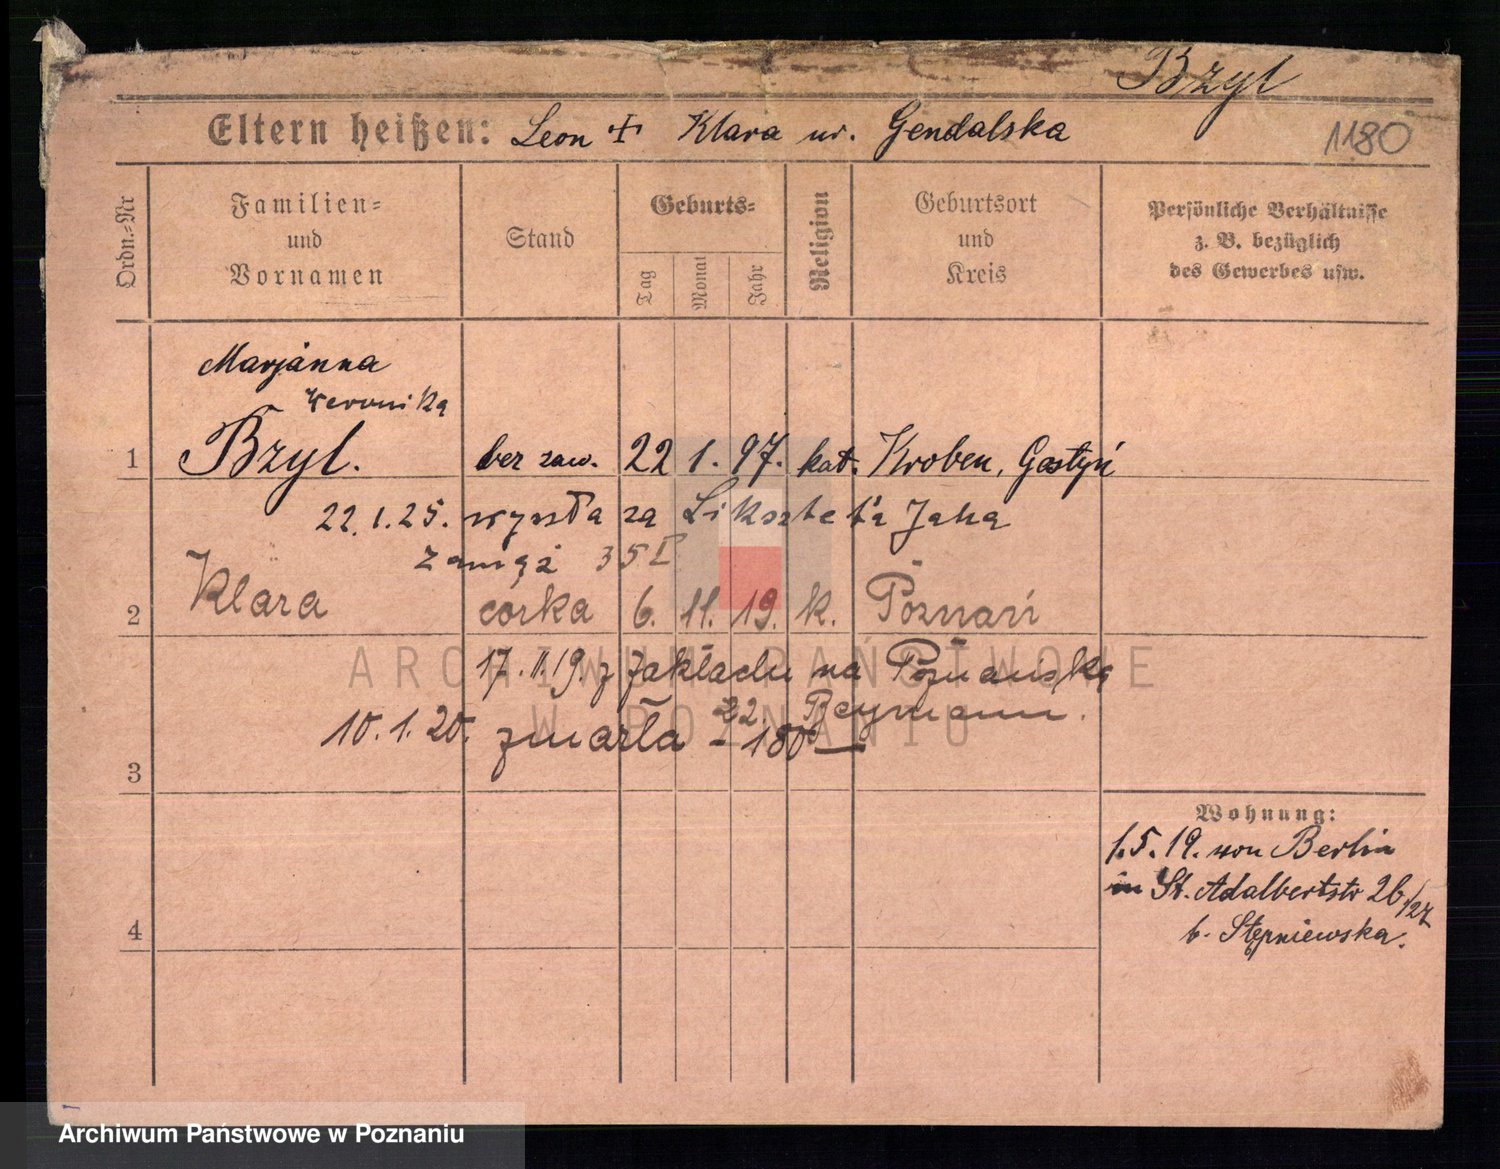 Bzyl
Eltern heißen: Leon + Klara ur. Gendalska
1180
Ordn.-Nr
Familien-
und
Vornamen
Stand
Geburts-
Tag
Monat
Jahr
Religion
Geburtsort
und
Kreis
Persönliche Verhältnisse
z. B. bezüglich
des Gewerbes usw.
Marjanna
Weronika
1 Bzyl. bez zaw. 22 1. 97. kat. Kroben, Gostyń
22.1.25. wyszła za Jana
zamąż 35
2 Klara córka 6. 11. 19. k. Poznań
17.11.19. z Zakładu na Poznańską
22. Reymann.
10.1.20. zmarła - 180
3
Wohnung:
1.5.19. von Berlin
in St. Adalbertstr 26/27
b. Stępniewska.
4
ARCHIWUM PAŃSTWOWE
W POZNANIU
Archiwum Państwowe w Poznaniu